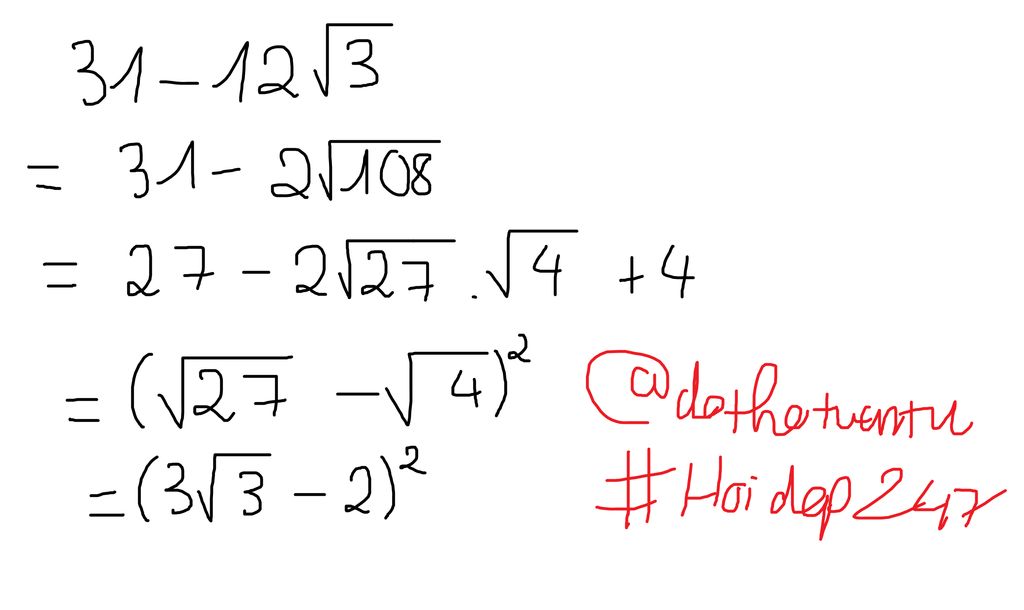 31 - 12√3
= 31 - 2√108
= 27 - 2√27 . √4 + 4
= (√27 - √4)²
= (3√3 - 2)²
@dothetuantu
#Hoidap247